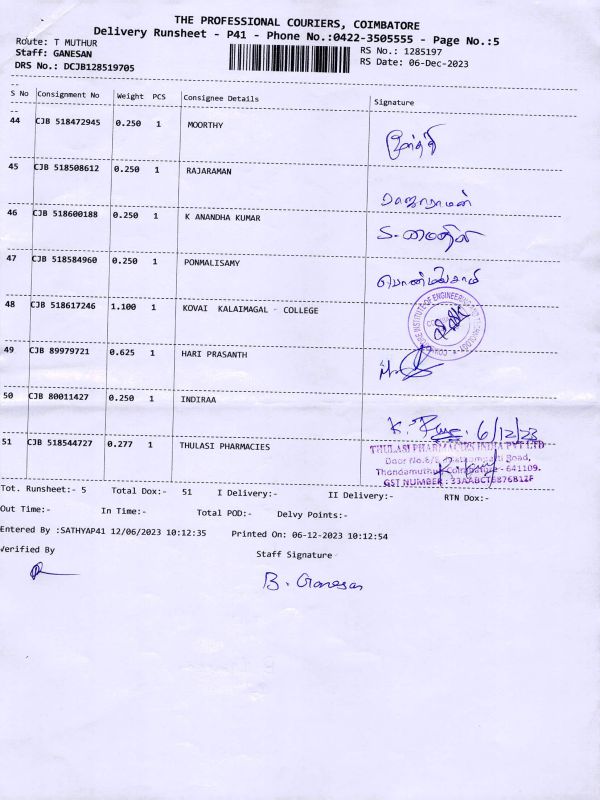 THE PROFESSIONAL COURIERS, COIMBATORE
Delivery Runsheet - P41 - Phone No.:0422-3505555 - Page No.:5
Route: T MUTHUR RS No.: 1285197
Staff: GANESAN RS Date: 06-Dec-2023
DRS No.: DCJB128519705
S No Consignment No Weight PCS Consignee Details Signature
44 CJB 518472945 0.250 1 MOORTHY மூர்த்தி
45 CJB 518508612 0.250 1 RAJARAMAN ராஜாராமன்
46 CJB 518600188 0.250 1 K ANANDHA KUMAR
47 CJB 518584960 0.250 1 PONMALISAMY பொன்மலிசாமி
48 CJB 518617246 1.100 1 KOVAI KALAIMAGAL - COLLEGE
INSTITUTE OF ENGINEERING
49 CJB 89979721 0.625 1 HARI PRASANTH
50 CJB 80011427 0.250 1 INDIRAA K. 6/12/23
51 CJB 518544727 0.277 1 THULASI PHARMACIES
THULASI PHARMACIES INDIA PVT LTD
Door No.6/ Road,
Thondamuthur, Coimbatore - 641109.
GST NUMBER : 33AABCT6876B1ZF
Tot. Runsheet:- 5 Total Dox:- 51 I Delivery:- II Delivery:- RTN Dox:-
Out Time:- In Time:- Total POD:- Delvy Points:-
Entered By :SATHYAP41 12/06/2023 10:12:35 Printed On: 06-12-2023 10:12:54
Verified By Staff Signature
B. Ganesan